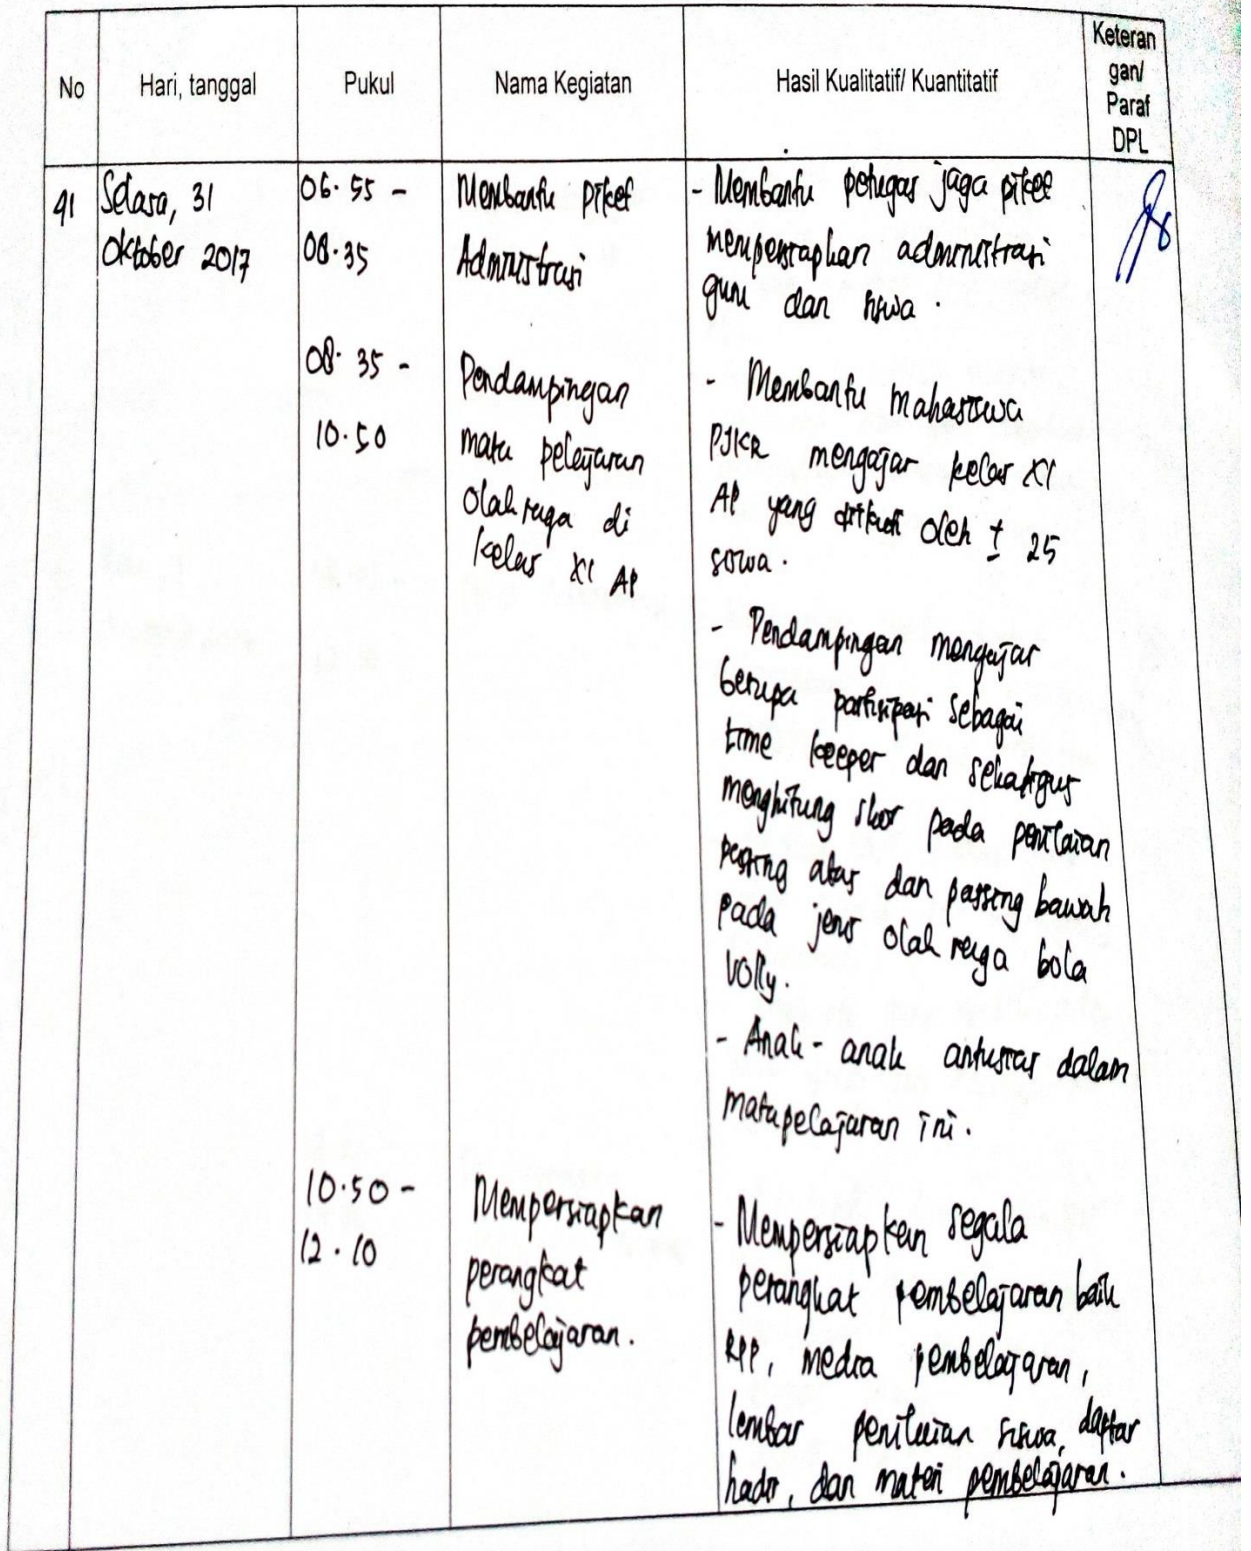 No
Hari, tanggal
Pukul
Nama Kegiatan
Hasil Kualitatif/ Kuantitatif
Keteran
gan/
Paraf
DPL
41
Selasa, 31
Oktober 2017
06.55 -
08.35
Membantu piket
Administrasi
- Membantu petugas jaga piket
mempersiapkan administrasi
guru dan siswa.
08.35 -
10.50
Pendampingan
mata pelajaran
Olah raga di
kelas XI AP
- Membantu mahasiswa
PJKR mengajar kelas XI
AP yang diikuti oleh ± 25
siswa.
- Pendampingan mengajar
berupa partisipasi sebagai
time keeper dan sekaligus
menghitung skor pada penilaian
passing atas dan passing bawah
pada jenis olah raga bola
volly.
- Anak - anak antusias dalam
matapelajaran ini.
10.50 -
12.10
Mempersiapkan
perangkat
pembelajaran.
- Mempersiapkan segala
perangkat pembelajaran baik
RPP, media pembelajaran,
lembar penilaian siswa, daftar
hadir, dan materi pembelajaran.